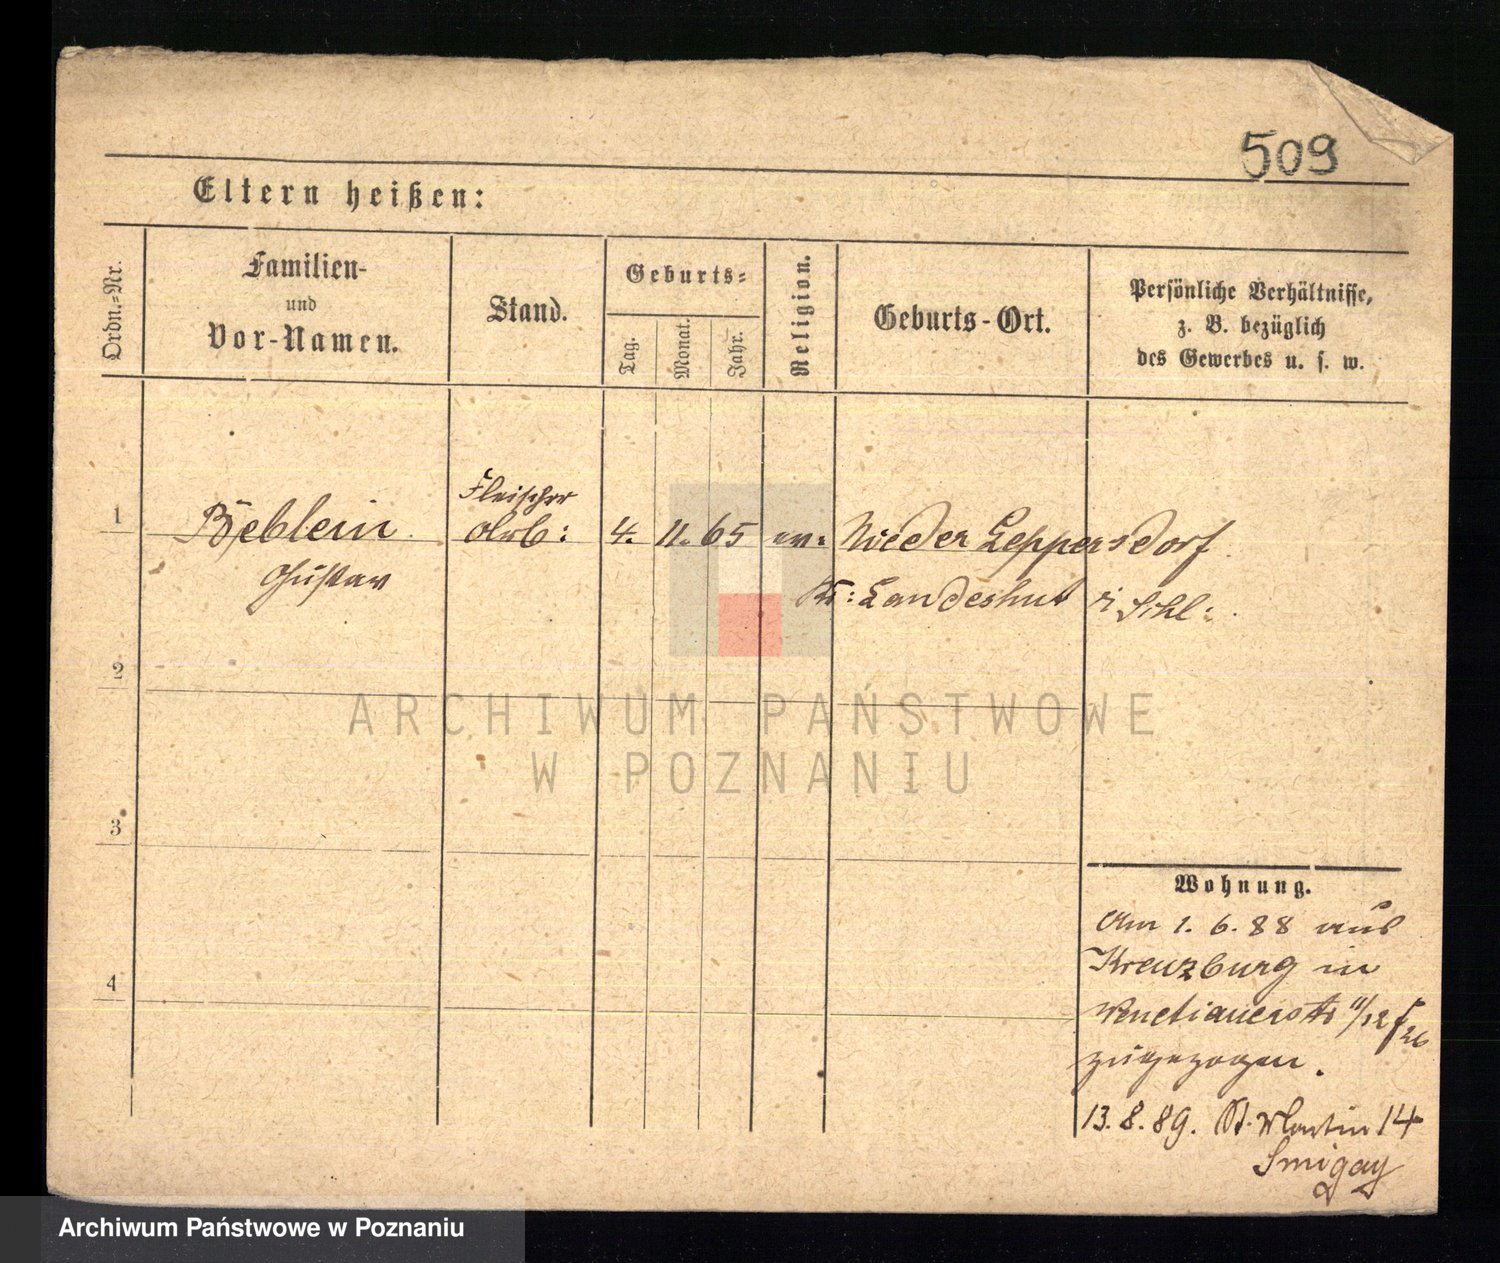 509
Eltern heißen:
Ordn.-Nr.
Familien-
und
Vor-Namen.
Stand.
Geburts-
Tag.
Monat.
Jahr.
Religion.
Geburts-Ort.
Persönliche Verhältnisse,
z. B. bezüglich
des Gewerbes u. s. w.
1
Beblein
Gustav
Fleischer
Arb:
4. 11. 65
ev:
Nieder Leppersdorf
Kr: Landeshut i Schl:
2
3
4
Wohnung.
Am 1. 6. 88 aus
Kreuzburg in
Venetianerstr 11/12
zugezogen.
13. 8. 89. St. Martin 14
Smigay
ARCHIWUM PAŃSTWOWE
W POZNANIU
Archiwum Państwowe w Poznaniu